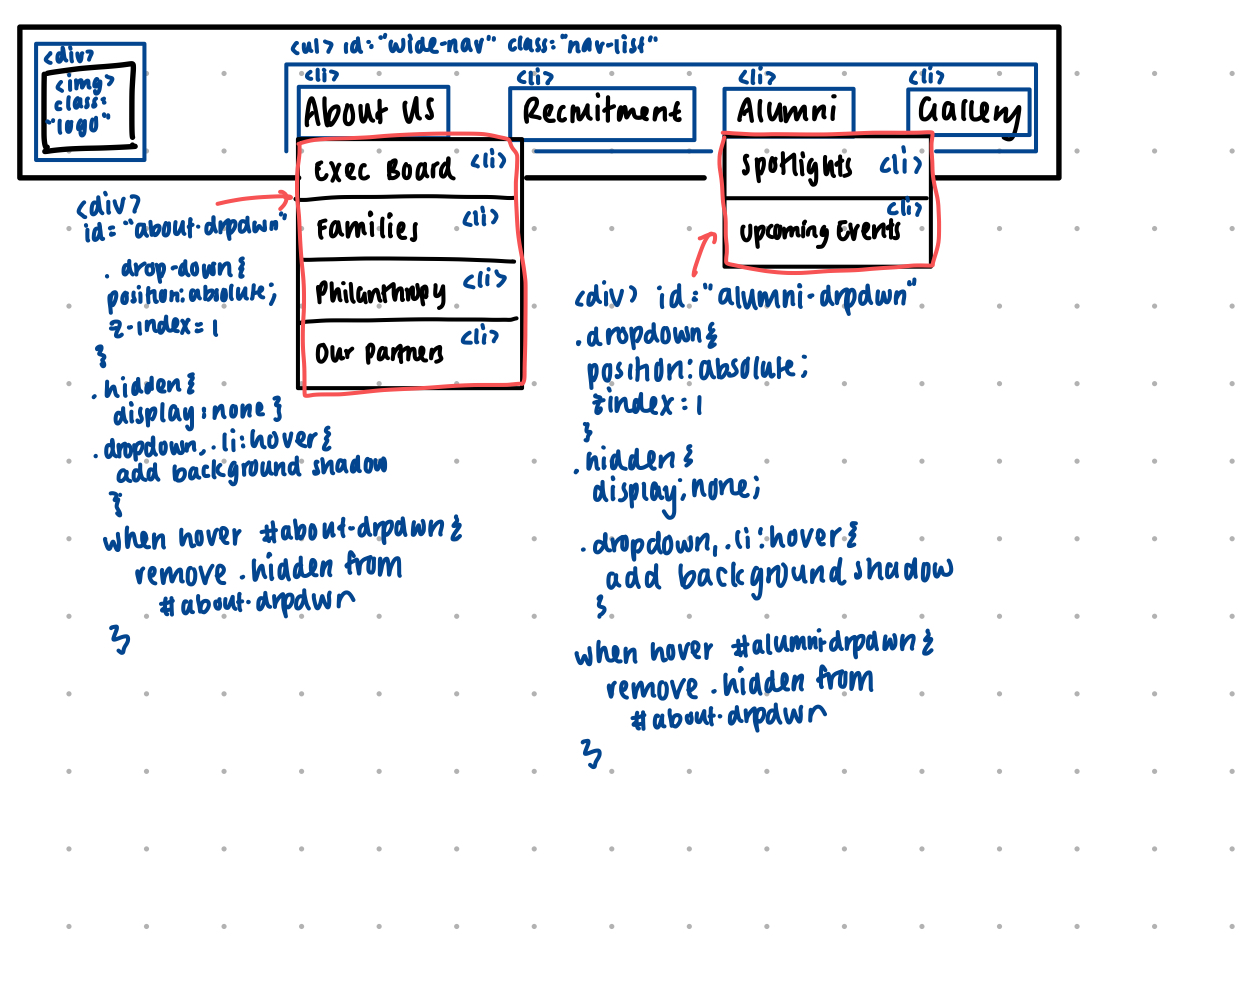 <ul> id="wide-nav" class="nav-list"
<div>
<img>
class:
"logo"
<li>
About Us
<li>
Recruitment
<li>
Alumni
<li>
Gallery
Exec Board <li>
Families <li>
Philanthropy <li>
Our Partners <li>
Spotlights <li>
<li>
Upcoming Events
<div>
id="about-drpdwn"
. drop-down {
position: absolute;
z-index = 1
}
.hidden {
display: none }
.dropdown, .li:hover {
add background shadow
}
when hover #about-drpdwn {
remove .hidden from
#about-drpdwn
}
<div> id="alumni-drpdwn"
.dropdown {
position: absolute;
zindex = 1
}
.hidden {
display: none;
.dropdown, .li:hover {
add background shadow
}
when hover #alumni-drpdwn {
remove .hidden from
#about-drpdwn
}